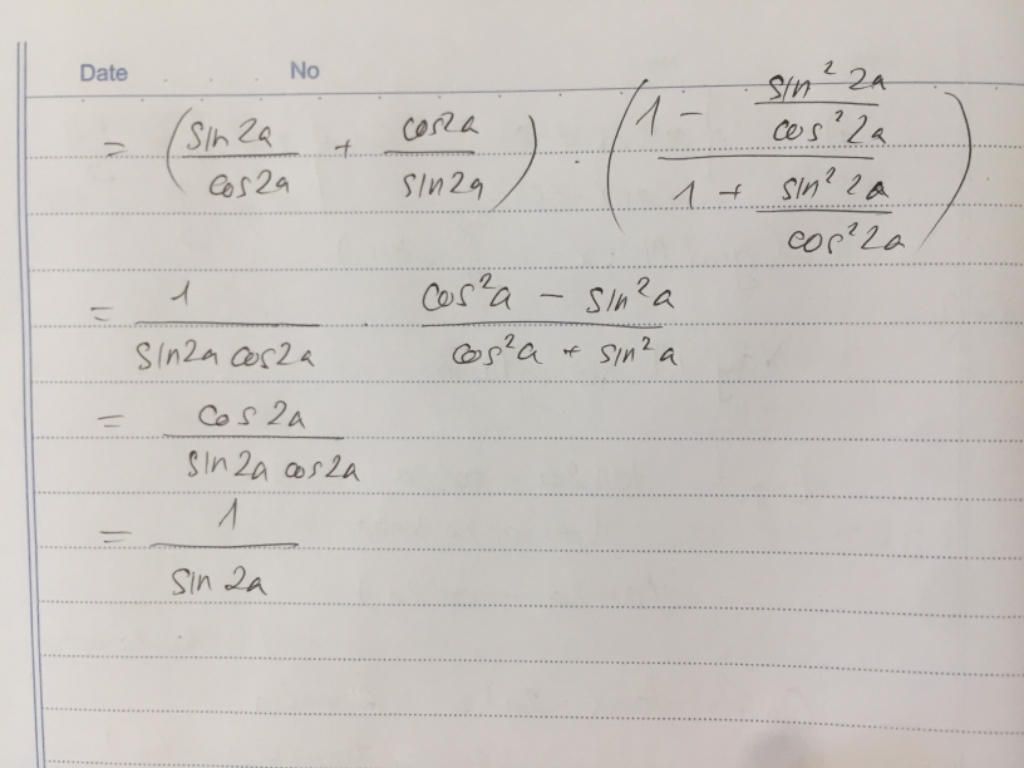 Date No
= (sin2a/cos2a + cos2a/sin2a) · ((1 - sin²2a/cos²2a)/(1 + sin²2a/cos²2a))
= 1/(sin2a cos2a) · (cos²a - sin²a)/(cos²a + sin²a)
= cos2a/(sin2a cos2a)
= 1/sin2a